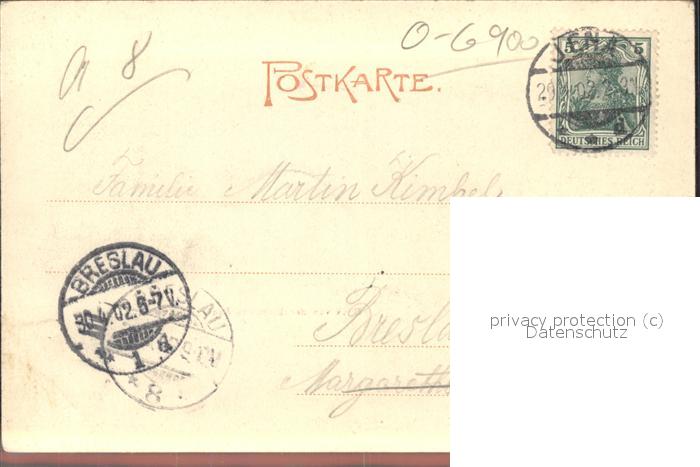 a 8
O-6900
POSTKARTE.
JENA
5 5
DEUTSCHES REICH
Familie Martin Kimbel
BRESLAU
30.4.02.6-7V.
* 1 a.
LAU
* 8
Bresla
Margareth
privacy protection (c)
Datenschutz